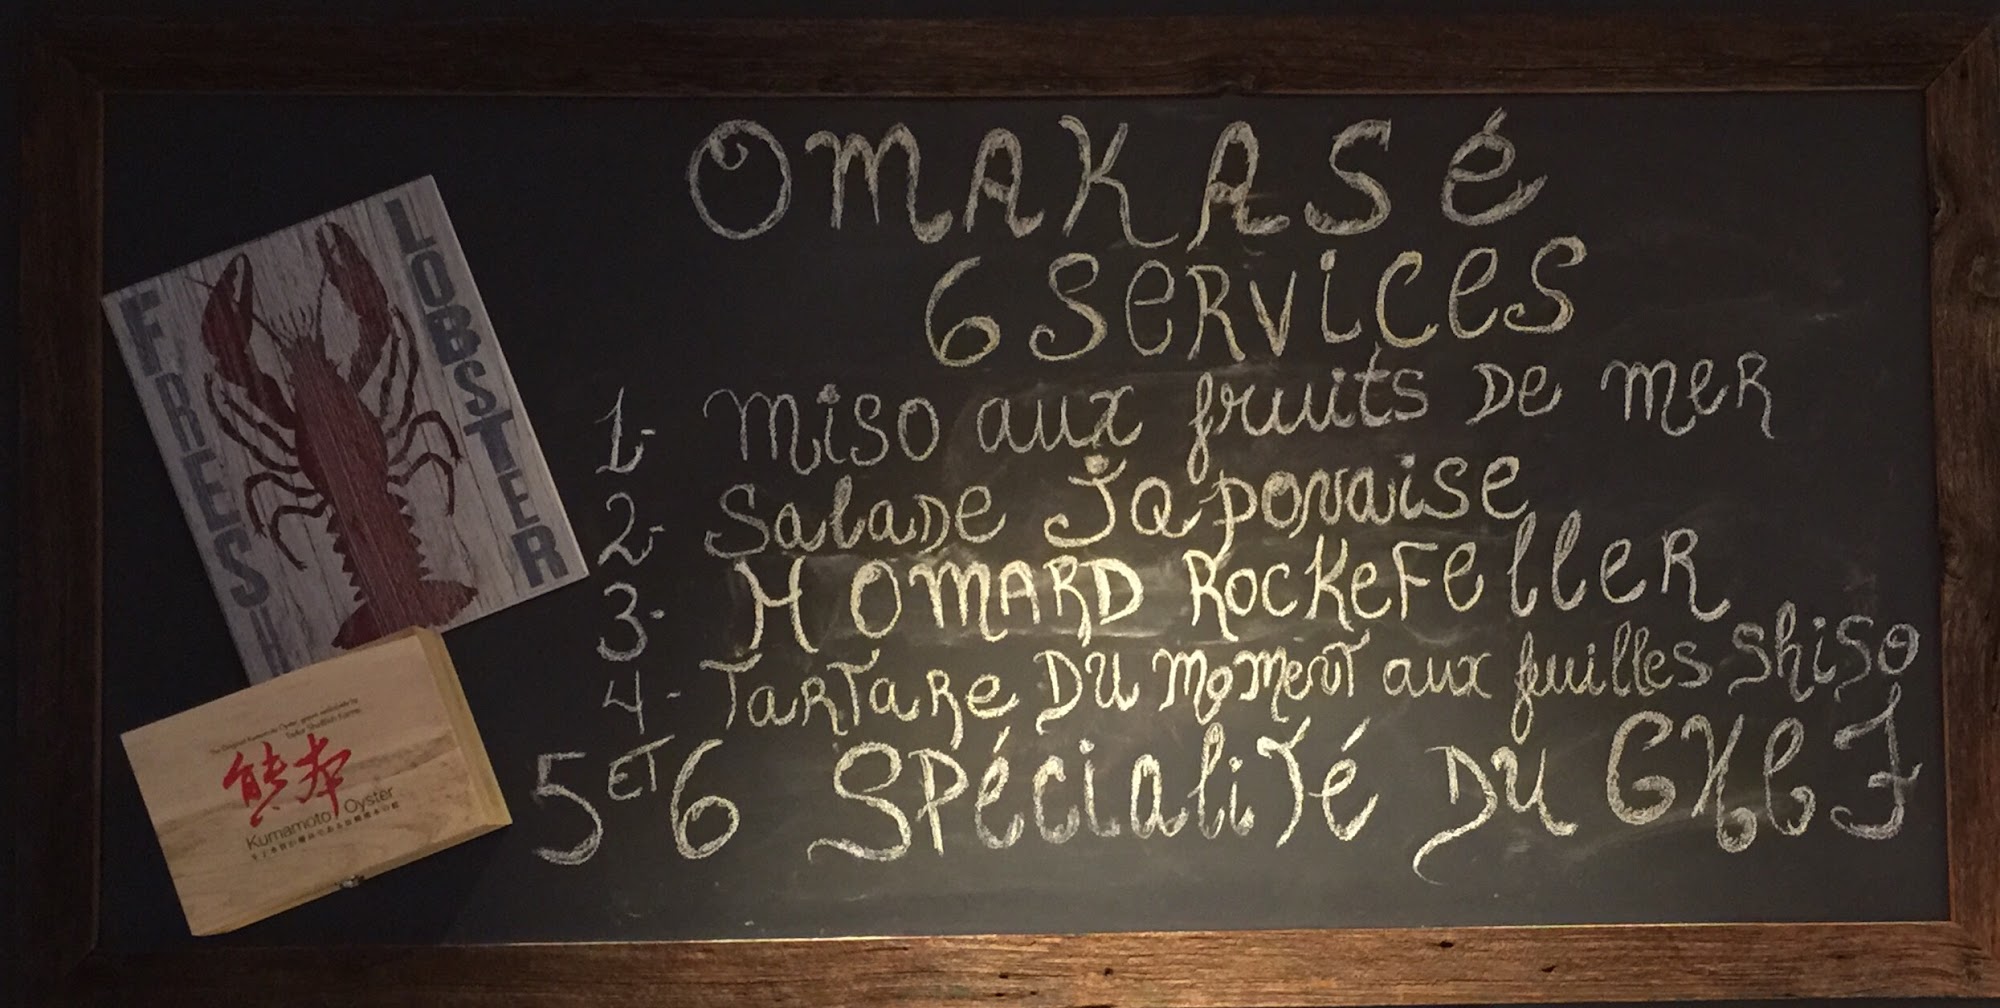 OMAKASé
6 SERVICES
1- MISO aux fruits DE MER
2- SALADE Japonaise
3- HOMARD ROCKEFELLER
4- TARTARE DU MOMENT aux feuilles Shiso
5 ET 6 SPéCIALITé DU
FRESH
LOBSTER
The Original Kumamoto Oyster, grown exclusively by
Taylor Shellfish Farms
熊本
Kumamoto Oyster